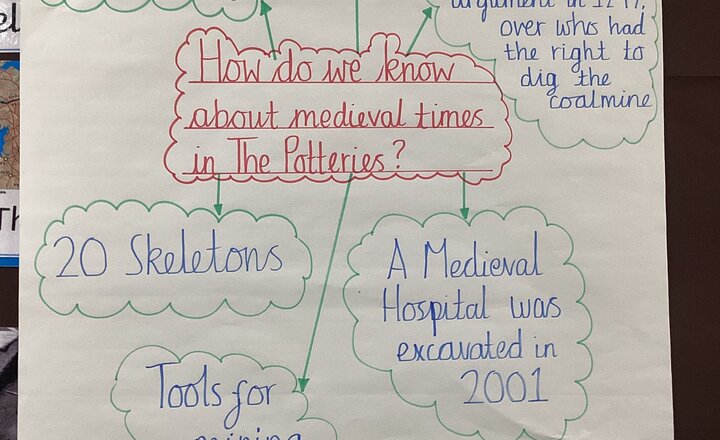 over who had
the right to
dig the
coalmine
How do we know
about medieval times
in The Potteries?
20 Skeletons
A Medieval
Hospital was
excavated in
2001
Tools for